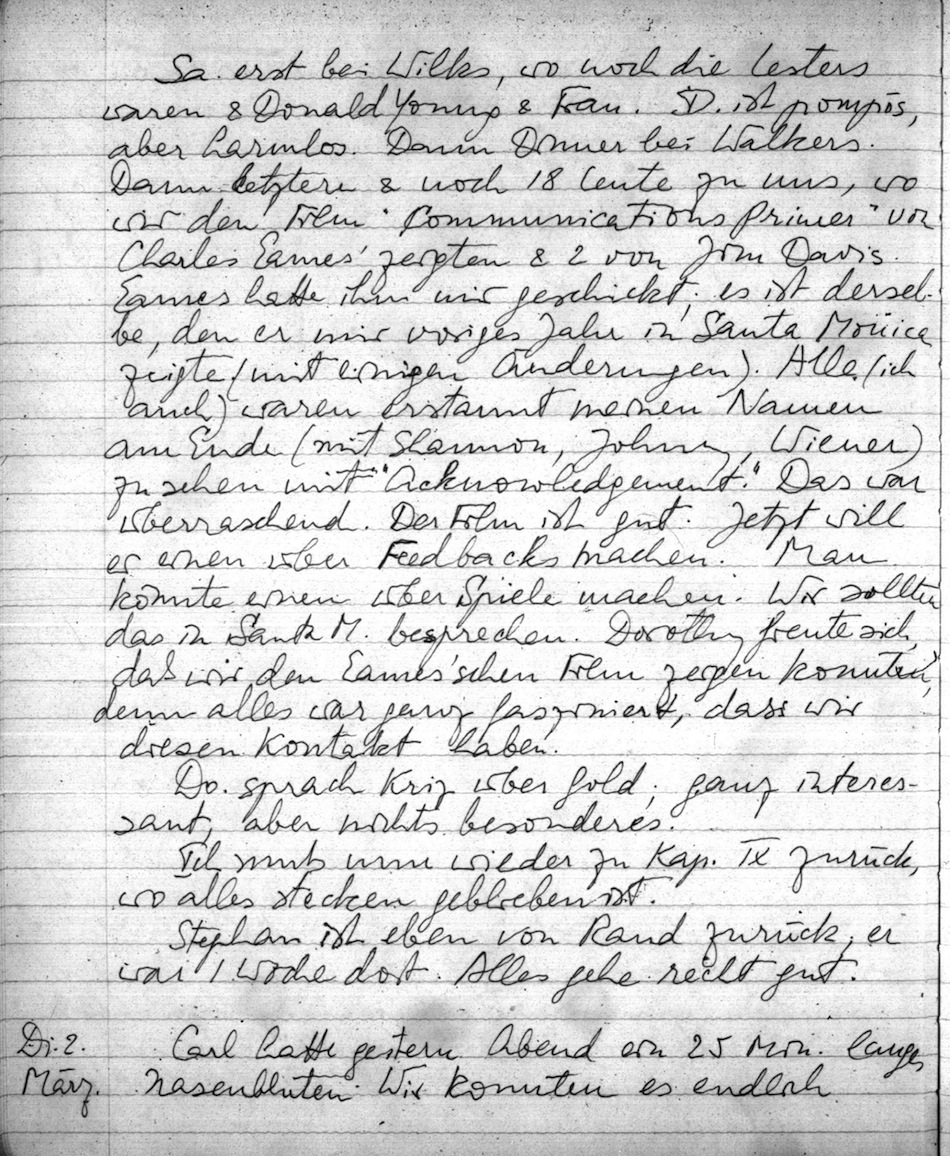 Sa. erst bei Wilks, wo noch die Lesters
waren & Donald Young & Frau. D. ist pompös,
aber harmlos. Dann Dinner bei Walkers.
Dann letztere & noch 18 Leute zu uns, wo
wir den Film "Communications Primer" von
Charles Eames' zeigten & 2 von Jim Davis.
Eames hatte ihn mir geschickt; es ist dersel-
be, den er mir voriges Jahr in Santa Monica
zeigte (mit einigen Änderungen). Alle (ich
auch) waren erstaunt meinen Namen
am Ende (mit Shannon, Johnny, Wiener)
zu sehen mit "Acknowledgement." Das war
überraschend. Der Film ist gut. Jetzt will
er einen über Feedbacks machen. Man
könnte einen über Spiele machen. Wir sollten
das in Santa M. besprechen. Dorothy freute sich,
daß wir den Eames'schen Film zeigen konnten,
denn alles war ganz fasziniert, dass wir
diesen Kontakt haben.
Do. sprach Kriz über Gold; ganz interes-
sant, aber nichts besonderes.
Ich muß nun wieder zu Kap. IX zurück,
wo alles stecken geblieben ist.
Stephan ist eben von Rand zurück, er
war 1 Woche dort. Alles gehe recht gut.
Di. 2. Carl hatte gestern Abend ein 25 Min. langes
März. Nasenbluten. Wir konnten es endlich